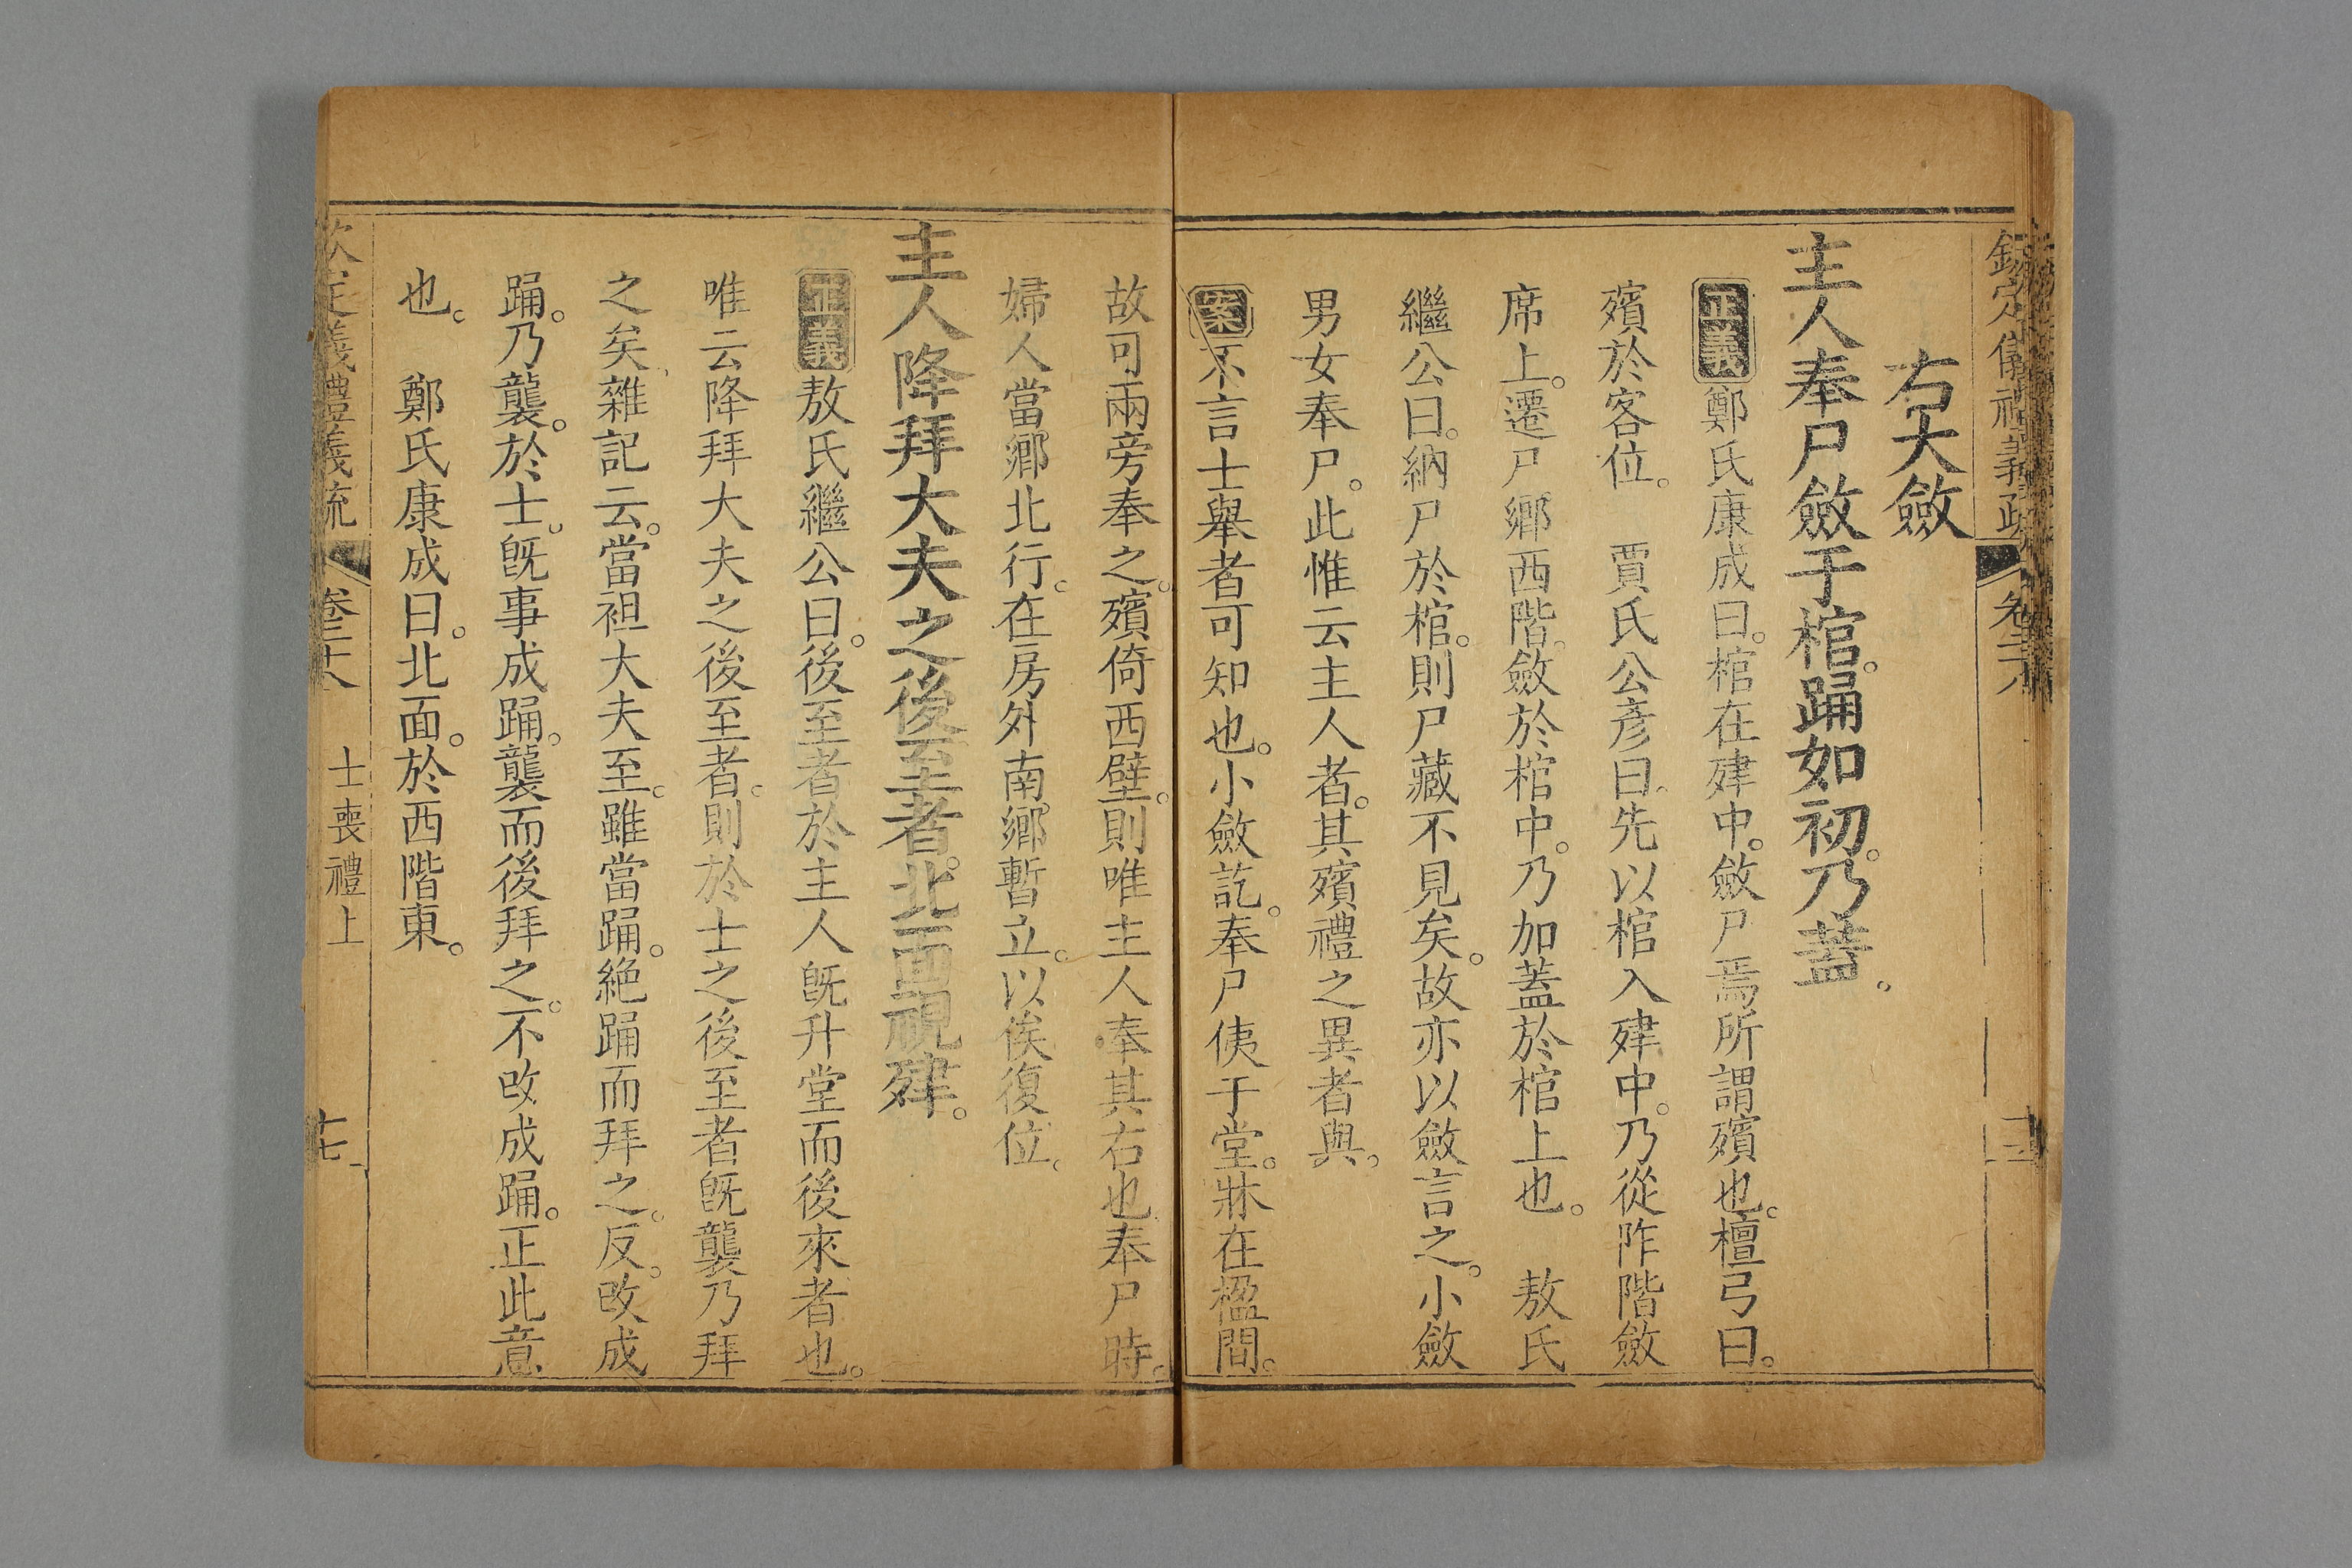 欽定儀禮義疏 卷二十八
右大斂
主人奉尸斂于棺。踊如初。乃蓋。
正義鄭氏康成曰。棺在肂中。斂尸焉所謂殯也。檀弓曰。
殯於客位。 賈氏公彥曰。先以棺入肂中。乃從阼階斂
席上。遷尸鄉西階。斂於棺中。乃加蓋於棺上也。 敖氏
繼公曰。納尸於棺。則尸藏不見矣。故亦以斂言之。小斂
男女奉尸。此惟云主人者。其殯禮之異者與。
案不言士舉者可知也。小斂訖。奉尸侇于堂。牀在楹間。
故可兩旁奉之。殯倚西壁。則唯主人奉其右也。奉尸時。
婦人當鄉北行。在房外南鄉。暫立。以俟復位。
主人降拜大夫之後至者。北面視肂。
正義敖氏繼公曰。後至者於主人旣升堂而後來者也。
唯云降拜大夫之後至者。則於士之後至者旣襲乃拜
之矣。雜記云。當袒大夫至。雖當踊。絕踊而拜之。反。改成
踊。乃襲。於士。旣事成踊。襲而後拜之。不改成踊。正此意
也。 鄭氏康成曰。北面。於西階東。
欽定儀禮義疏 卷二十八 士喪禮上 十七